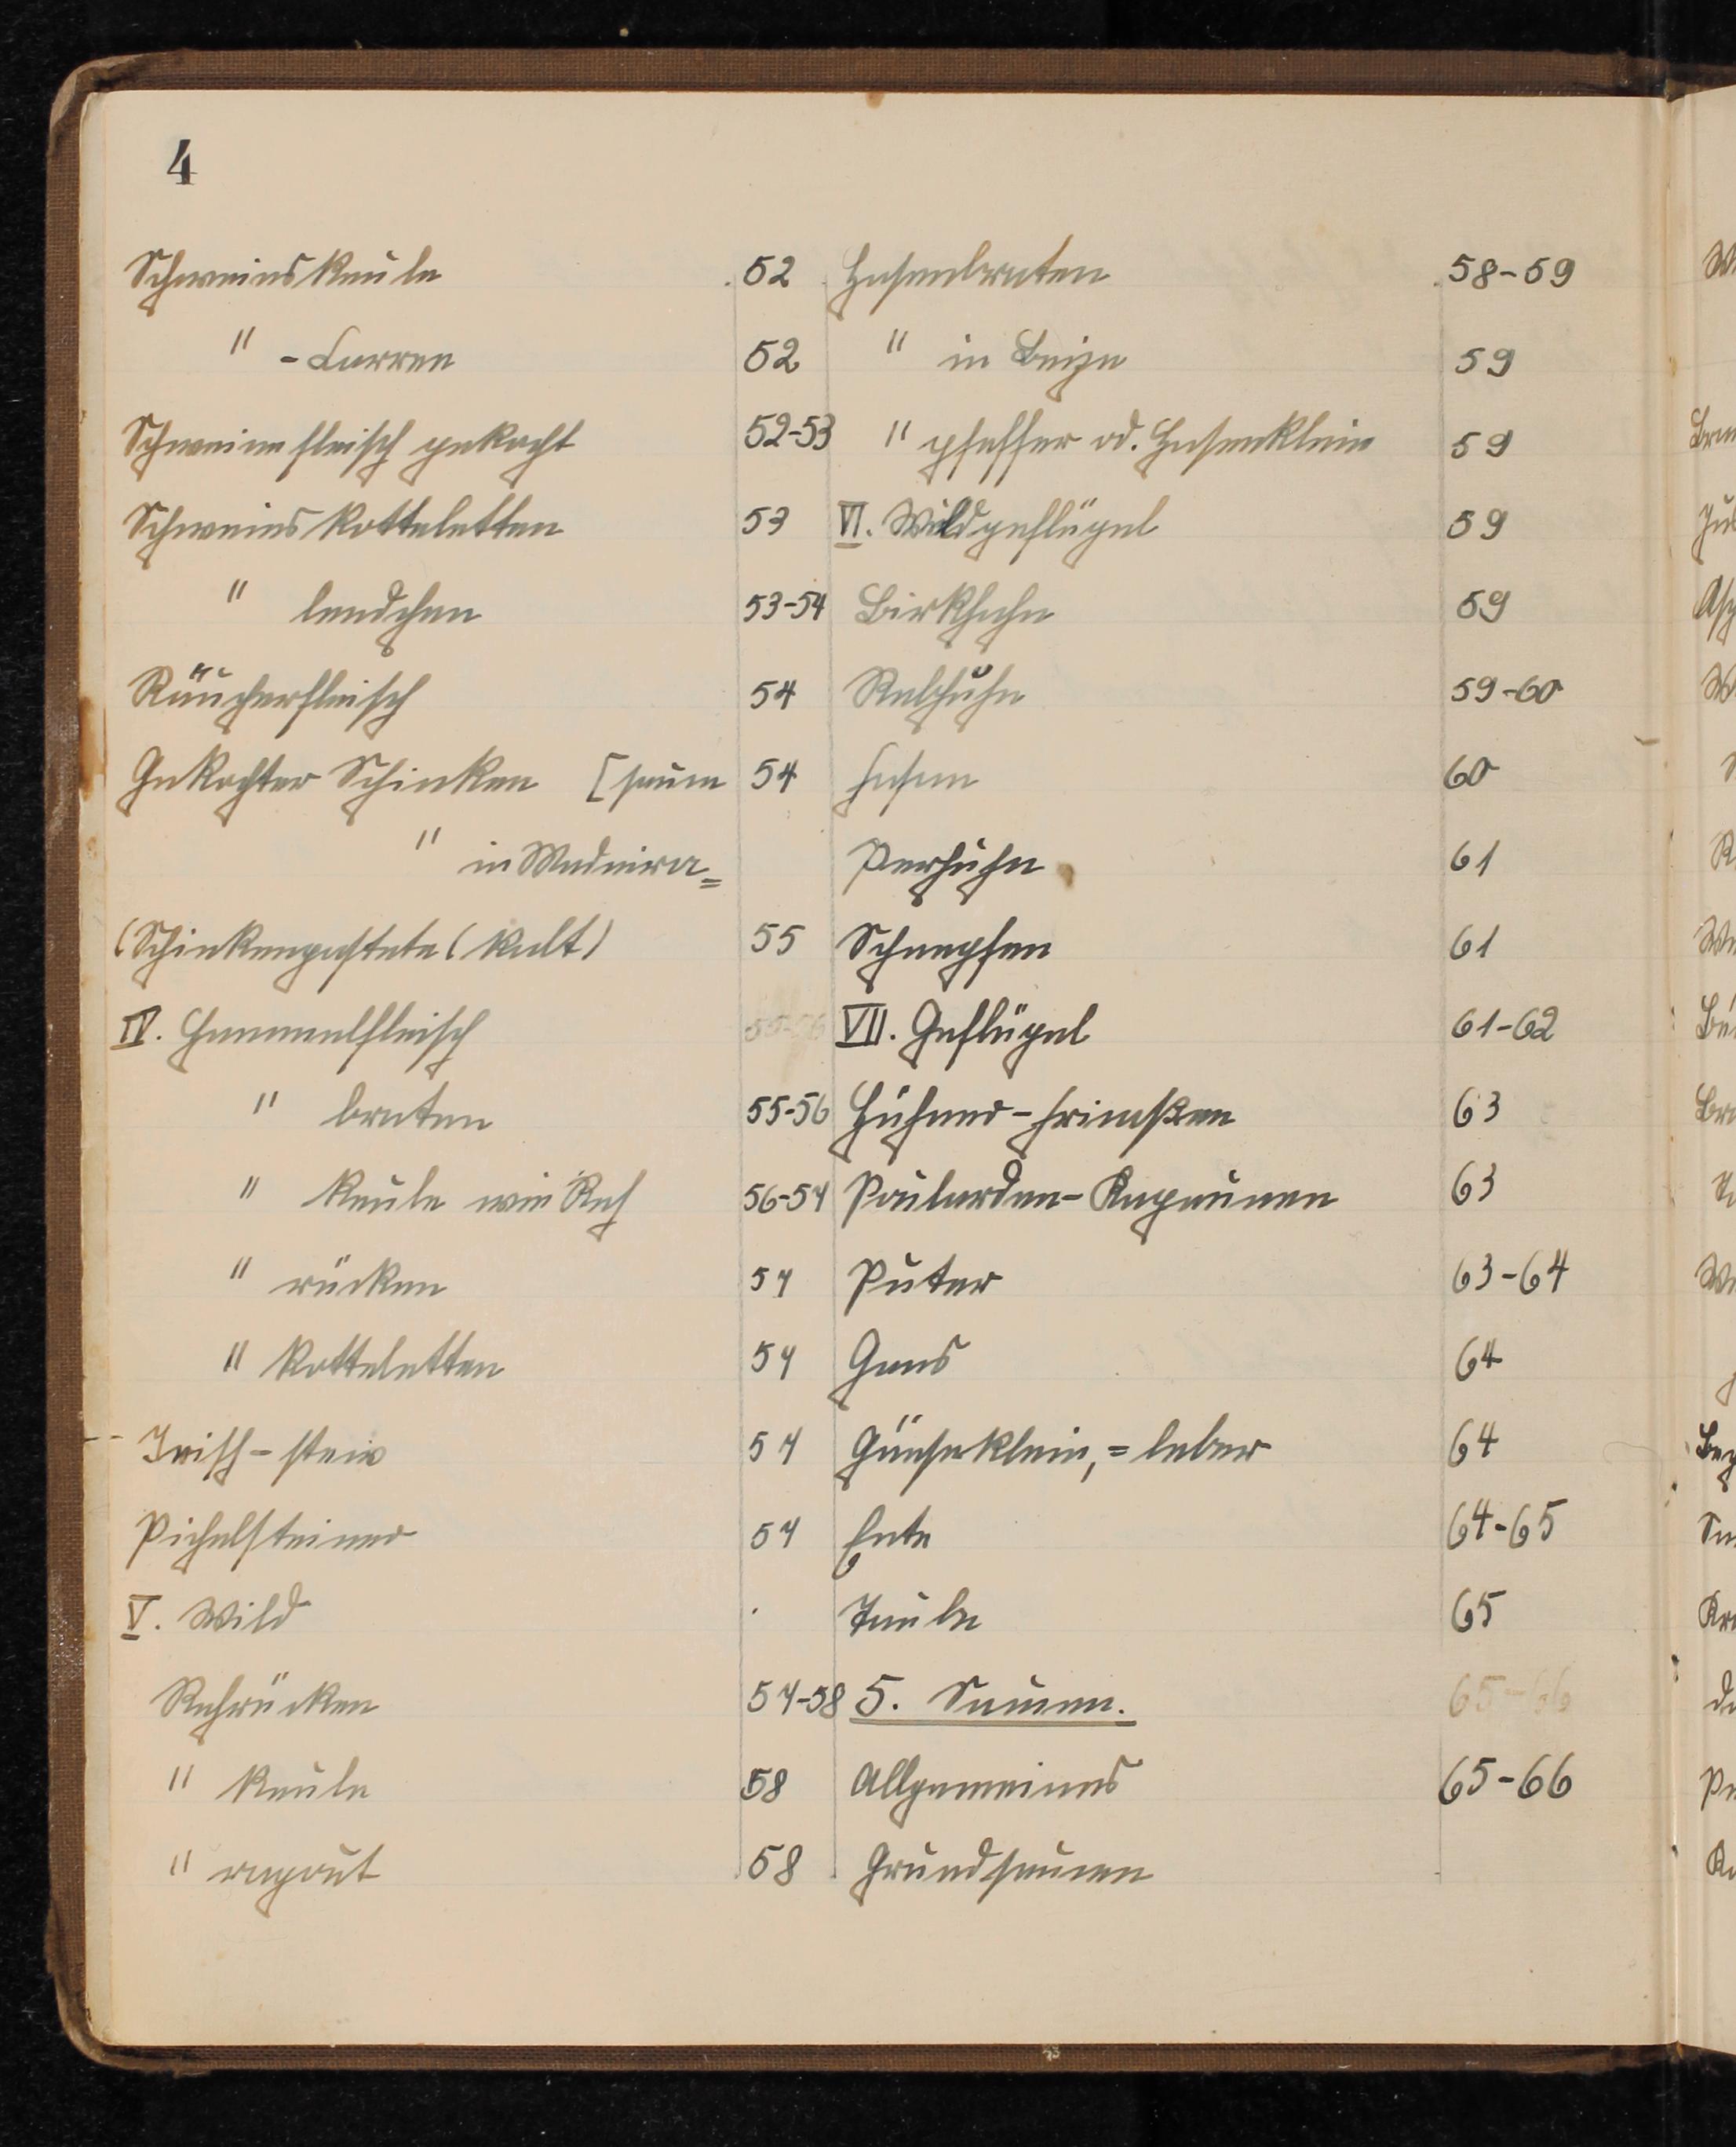 4
Schweinskeule 52
" -Carree 52
Schweinefleisch gekocht 52-53
Schweinskotteletten 53
" lendchen 53-54
Räucherfleisch 54
Gekochter Schinken [sauce 54
" in Madeira=
(Schinkenpastete (kalt) 55
IV. Hammelfleisch 55-56
" braten 55-56
" keule wie Reh 56-57
" rücken 57
" kotteletten 57
Irish-stew 57
Pichelsteiner 57
V. Wild
Rehrücken 57-58
" keule 58
" ragout 58
Hasenbraten 58-59
" in Beize 59
" pfeffer od. Hasenklein 59
VI. Wildgeflügel 59
Birkhahn 59
Rebhuhn 59-60
Fasan 60
Perlhuhn 61
Schnepfen 61
VII. Geflügel 61-62
Hühner-Frikassee 63
Poularden-Kapaunen 63
Puter 63-64
Gans 64
Gänseklein,=leber 64
Ente 64-65
Taube 65
5. Saucen. 65-66
Allgemeines 65-66
Grundsaucen